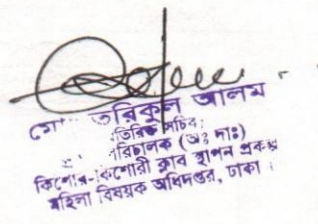 মো তরিকুল আলম
তিরিক্ত সচিব
রিচালক (অঃ দাঃ)
কিশোর-কিশোরী ক্লাব স্থাপন প্রকল্প
মহিলা বিষয়ক অধিদপ্তর, ঢাকা।